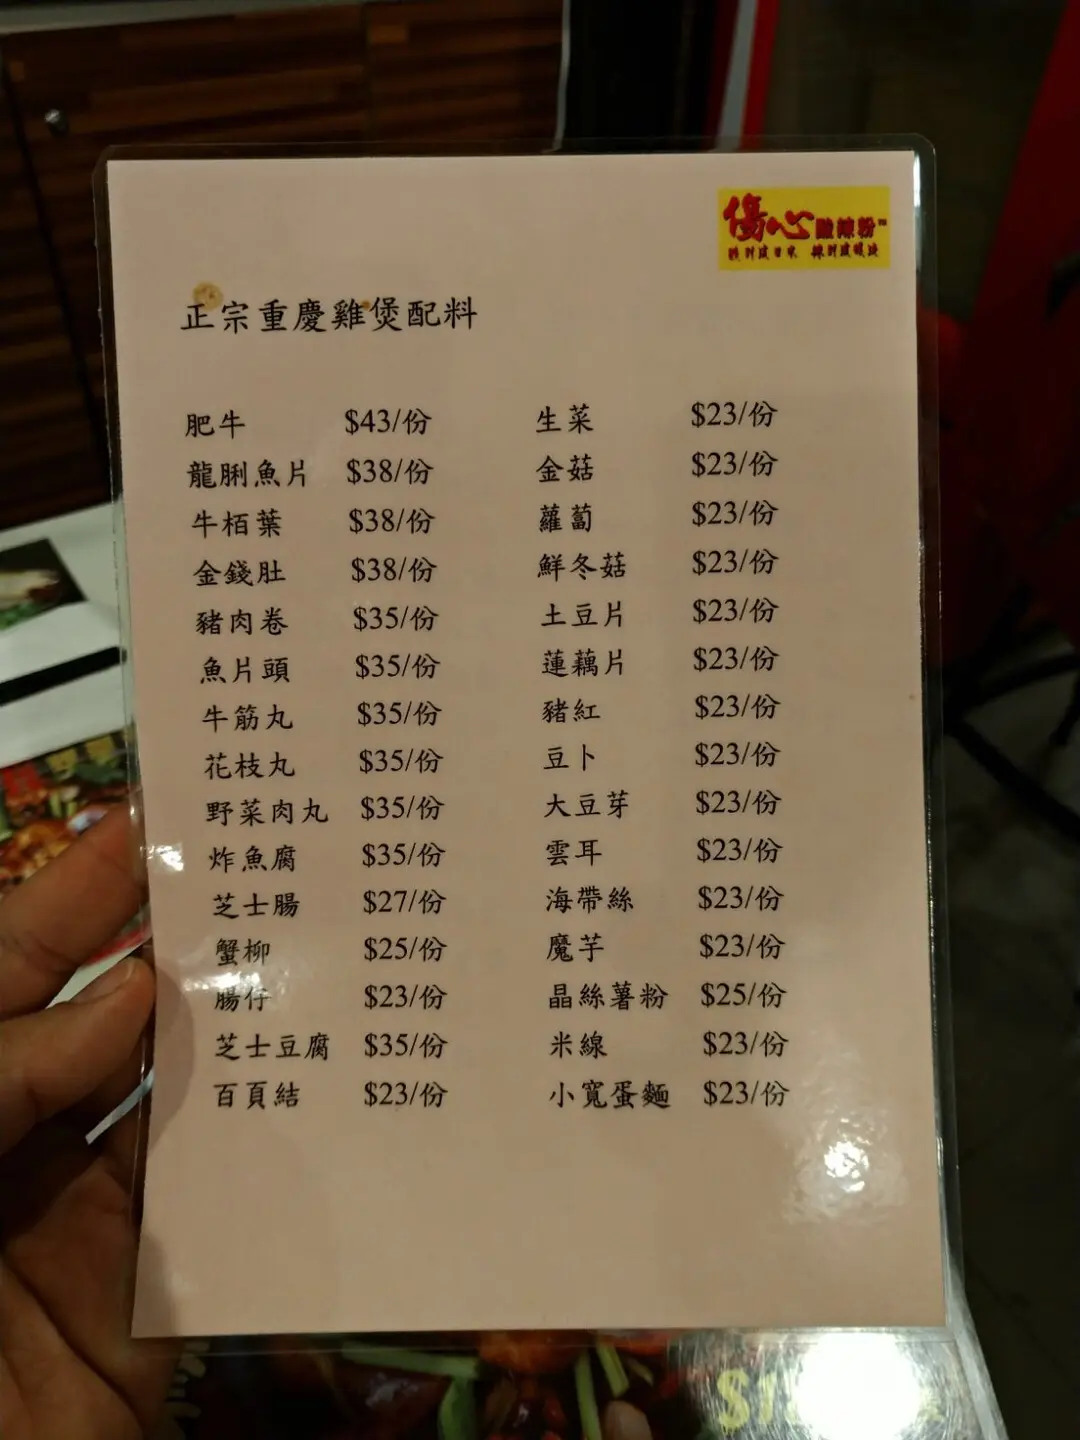 傷心酸辣粉™
正宗重慶雞煲配料
肥牛 $43/份
龍脷魚片 $38/份
牛栢葉 $38/份
金錢肚 $38/份
豬肉卷 $35/份
魚片頭 $35/份
牛筋丸 $35/份
花枝丸 $35/份
野菜肉丸 $35/份
炸魚腐 $35/份
芝士腸 $27/份
蟹柳 $25/份
腸仔 $23/份
芝士豆腐 $35/份
百頁結 $23/份
生菜 $23/份
金菇 $23/份
蘿蔔 $23/份
鮮冬菇 $23/份
土豆片 $23/份
蓮藕片 $23/份
豬紅 $23/份
豆卜 $23/份
大豆芽 $23/份
雲耳 $23/份
海帶絲 $23/份
魔芋 $23/份
晶絲薯粉 $25/份
米線 $23/份
小寬蛋麵 $23/份